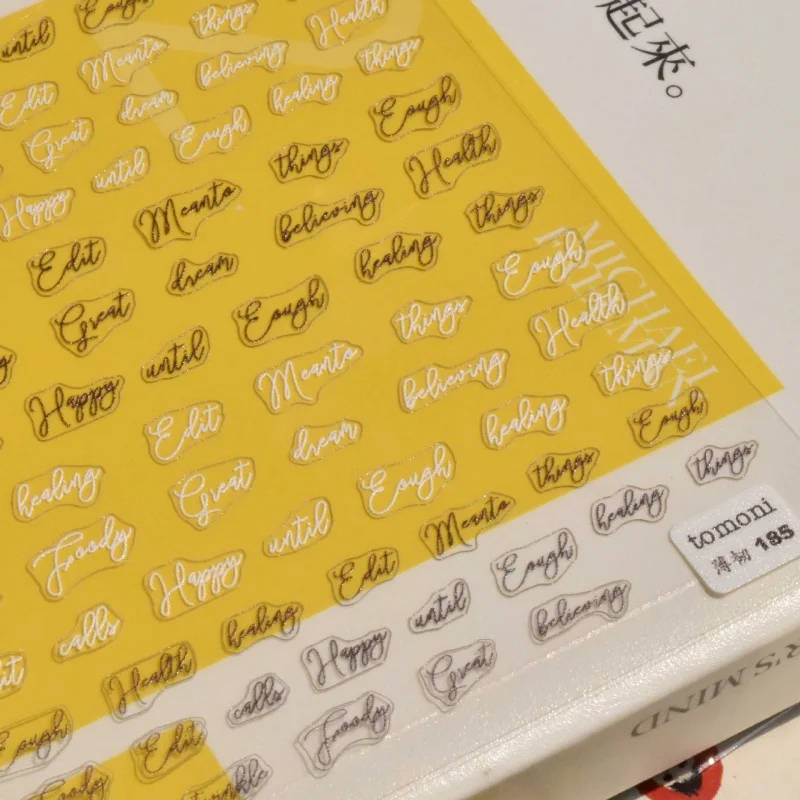 until Eough things Health
Meanto believing things
Edit dream healing
Great Eough Eough
until things Health
Happy Meanto believing things
Edit dream healing Eough
Great Eough things Health
until Meanto believing things
Happy Edit dream healing Eough
healing Great Eough things things
Foody until Meanto healing
Happy Edit Eough
calls healing until believing
Health Happy Great
calls
Eough Edit Foody
Foody twinkle
起來。
MICHAEL
tomoni
薄切 185
R'S MIND